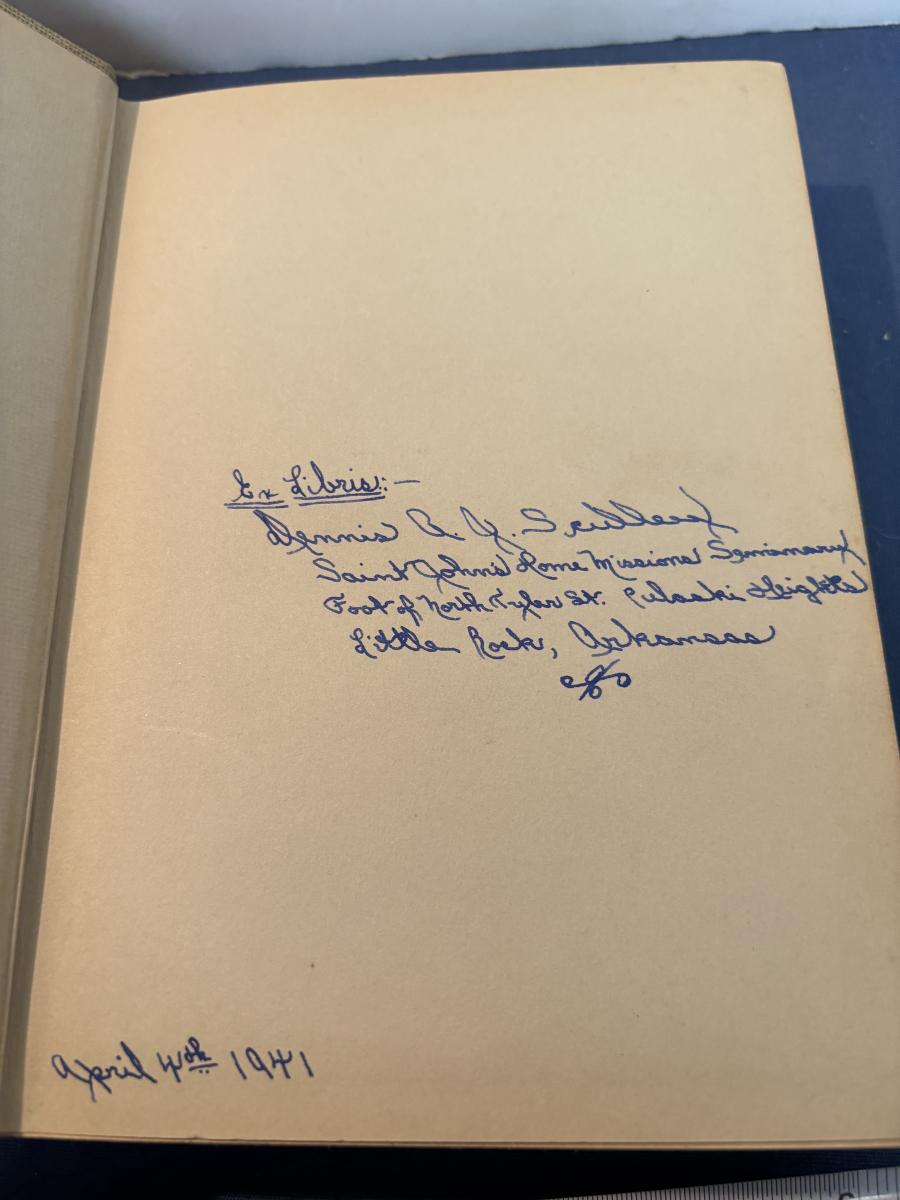 Ex Libris:—
Dennis A. J. Sculley
Saint John's Home Missions Seminary
Foot of North Tyler St. Pulaski Heights
Little Rock, Arkansas
April 4th 1941